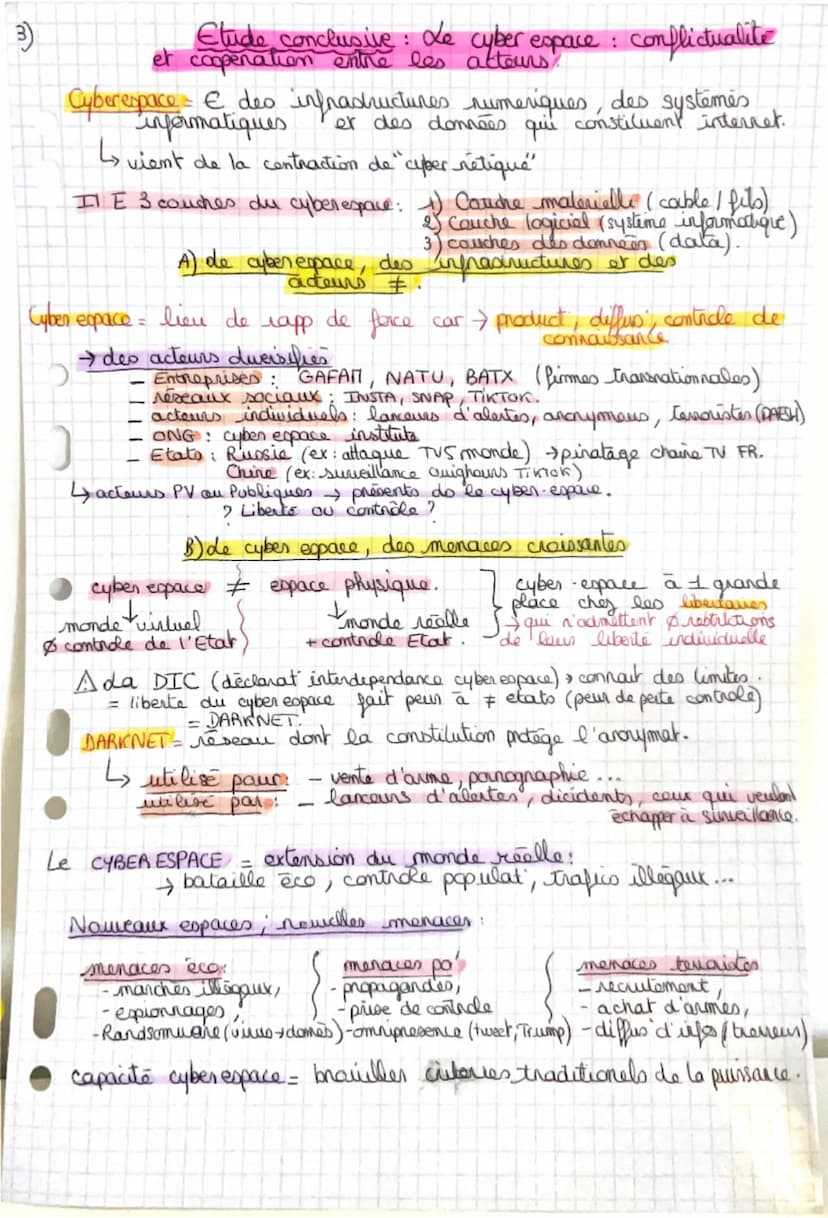 3)
Etude conclusive : Le cyber espace : conflictualité
et coopération entre les acteurs.
Cyberespace = € des infrastructures numériques, des systèmes
informatiques et des données qui constituent internet.
↳ vient de la contraction de "cyber nétique"
Il E 3 couches du cyberespace : 1) Couche matérielle (cable / fils)
2) Couche logiciel (système informatique)
3) couches des données (data).
A) Le cyberespace, des infrastructures et des
acteurs ≠.
Cyber espace = lieu de rapp de force car → product°, diffus°, controle de
connaissance
→ des acteurs diversifiés
– Entreprises : GAFAM, NATU, BATX (firmes transnationnales)
– réseaux sociaux : INSTA, SNAP, TIKTOK.
– acteurs individuels : lanceurs d'alertes, anonymous, terroristes (DAESH)
– ONG : cyber espace institute
– Etats : Russie (ex : attaque TV5 monde) → piratage chaine TV FR.
Chine (ex : surveillance Ouighours TikTok)
↳ acteurs PV ou Publiques → présents ds le cyber-espace.
? Liberté ou contrôle ?
B) Le cyber espace, des menaces croissantes
cyber espace ≠ espace physique.
↓ monde virtuel
Ø controle de l'Etat
↓ monde réelle
+ controle Etat.
cyber-espace à 1 grande
place chez les libertaires
→ qui n'admettent Ø restrictions
de leurs liberté individuelle
⚠ La DIC (déclarat° interdependance cyberespace) → connait des limites.
= liberté du cyber espace fait peur à ≠ etats (peur de perte controle)
= DARKNET.
DARKNET = réseau dont la constitution protège l'anonymat.
↳ utilisé pour : – vente d'arme, pornographie ...
utilisé par : – lanceurs d'alertes, dicidents, ceux qui veulent
échapper à surveillance.
Le CYBER ESPACE = extension du monde réelle :
→ bataille éco, controle populat°, trafics illégaux...
Nouveaux espaces ; nouvelles menaces :
menaces éco :
- marchés illégaux,
- espionnages,
- Randsomware (virus → donnés)
menaces po°
- propagandes,
- prise de controle
- omniprésence (tweet, Trump)
menaces terroristes
– recrutement,
- achat d'armes,
– diffus° d'infos (terreurs)
capacité cyberespace = brouiller critères traditionels de la puissance.